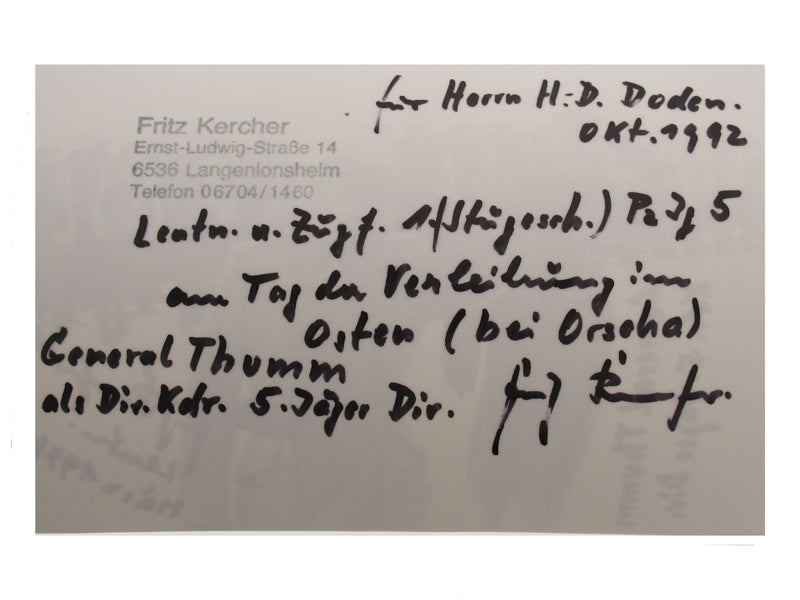 für Herrn H.-D. Doden.
Okt. 1992
Fritz Kercher
Ernst-Ludwig-Straße 14
6536 Langenlonsheim
Telefon 06704/1460
Leutn. u. Zugf. 1/(Stugesch.) Pz Jg 5
am Tag der Verleihung im
Osten (bei Orscha)
General Thumm
als Div. Kdr. 5. Jäger Div.